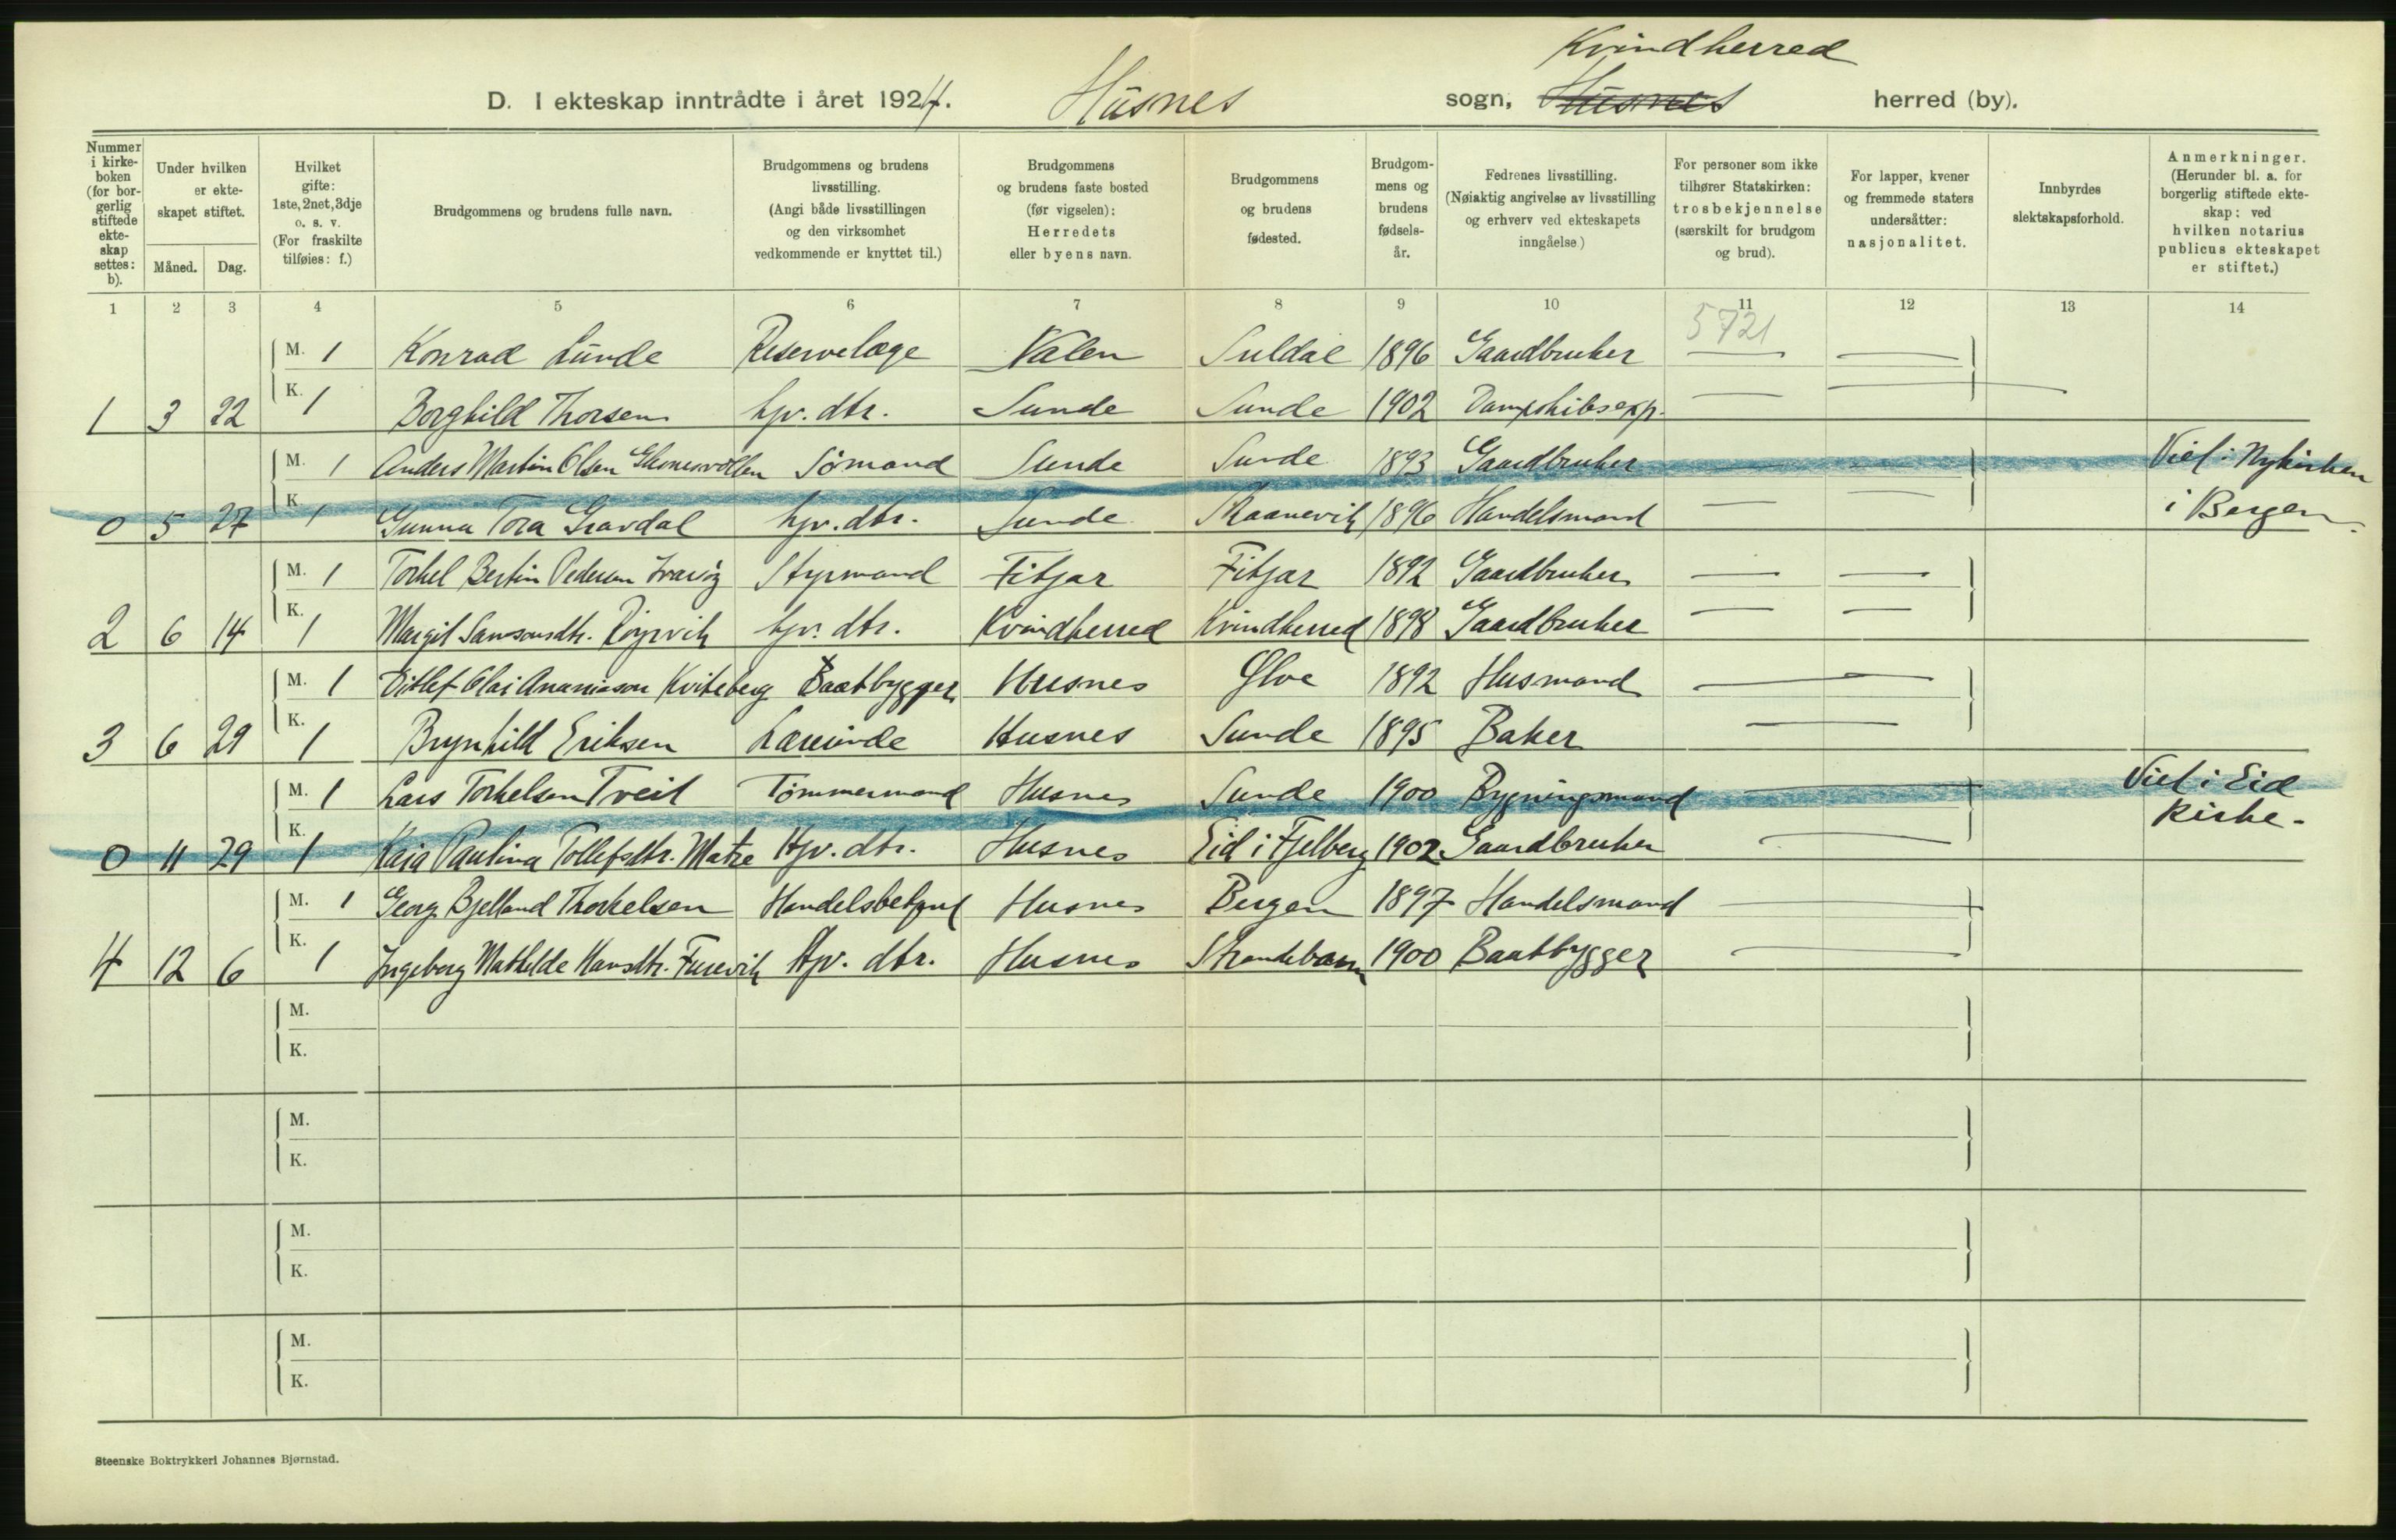 Kvindherred
D. I ekteskap inntrådte i året 1924. Husnes sogn, Husnes herred (by).
Nummer i kirkeboken (for borgerlig stiftede ekteskap settes: b).
Under hvilken er ekteskapet stiftet.
Måned. Dag.
Hvilket gifte: 1ste, 2net, 3dje o. s. v. (For fraskilte tilføies: f.)
Brudgommens og brudens fulle navn.
Brudgommens og brudens livsstilling. (Angi både livsstillingen og den virksomhet vedkommende er knyttet til.)
Brudgommens og brudens faste bosted (før vigselen): Herredets eller byens navn.
Brudgommens og brudens fødested.
Brudgommens og brudens fødselsår.
Fedrenes livsstilling. (Nøiaktig angivelse av livsstilling og erhverv ved ekteskapets inngåelse)
For personer som ikke tilhører Statskirken: trosbekjennelse (særskilt for brudgom og brud).
For lapper, kvener og fremmede staters undersåtter: nasjonalitet.
Innbyrdes slektskapsforhold.
Anmerkninger. (Herunder bl. a. for borgerlig stiftede ekteskap: ved hvilken notarius publicus ekteskapet er stiftet.)
1 2 3 4 5 6 7 8 9 10 11 12 13 14
5721
M. 1 Konrad Lunde Reservelæge Valen Suldal 1896 Gaardbruker
1 3 22 K. 1 Borghild Thorsen hjv. dtr. Sunde Sunde 1902 Dampskibsexp.
M. 1 Anders Martin Olsen Sømand Sunde Sunde 1893 Gaardbruker Viet i Nykirken
0 5 27 K 1 Gunna Tora Gravdal hjv. dtr. Sunde Skaanevik 1896 Handelsmand i Bergen.
M. 1 Torkel Bertin Pedersen Styrmand Fitjar Fitjar 1892 Gaardbruker
2 6 14 K. 1 Margit Samsonsdtr. Røyrvik hjv. dtr. Kvindherred Kvindherred 1898 Gaardbruker
M. 1 Ditlef Olai Ananiasson Kviteberg Baatbygger Husnes Ølve 1892 Husmand
3 6 29 K. 1 Brynhild Eriksen Lærerinde Husnes Sunde 1895 Baker
M. 1 Lars Torkelsen Tveit Tømmermand Husnes Sunde 1900 Bygningsmand Viet i Eid
0 11 29 K. 1 Kaia Paulina Tollefsdtr. Matre Hjv. dtr. Husnes Eid i Fjelberg 1902 Gaardbruker kirke.
M. 1 Georg Bjelland Thorkelsen Handelsbetjent Husnes Bergen 1897 Handelsmand
4 12 6 K. 1 Ingeborg Mathilde Hansdtr. Furevik Hjv. dtr. Husnes Strandebarm 1900 Baatbygger
M.
K.
M.
K.
M.
K.
M.
K.
Steenske Boktrykkeri Johannes Bjørnstad.